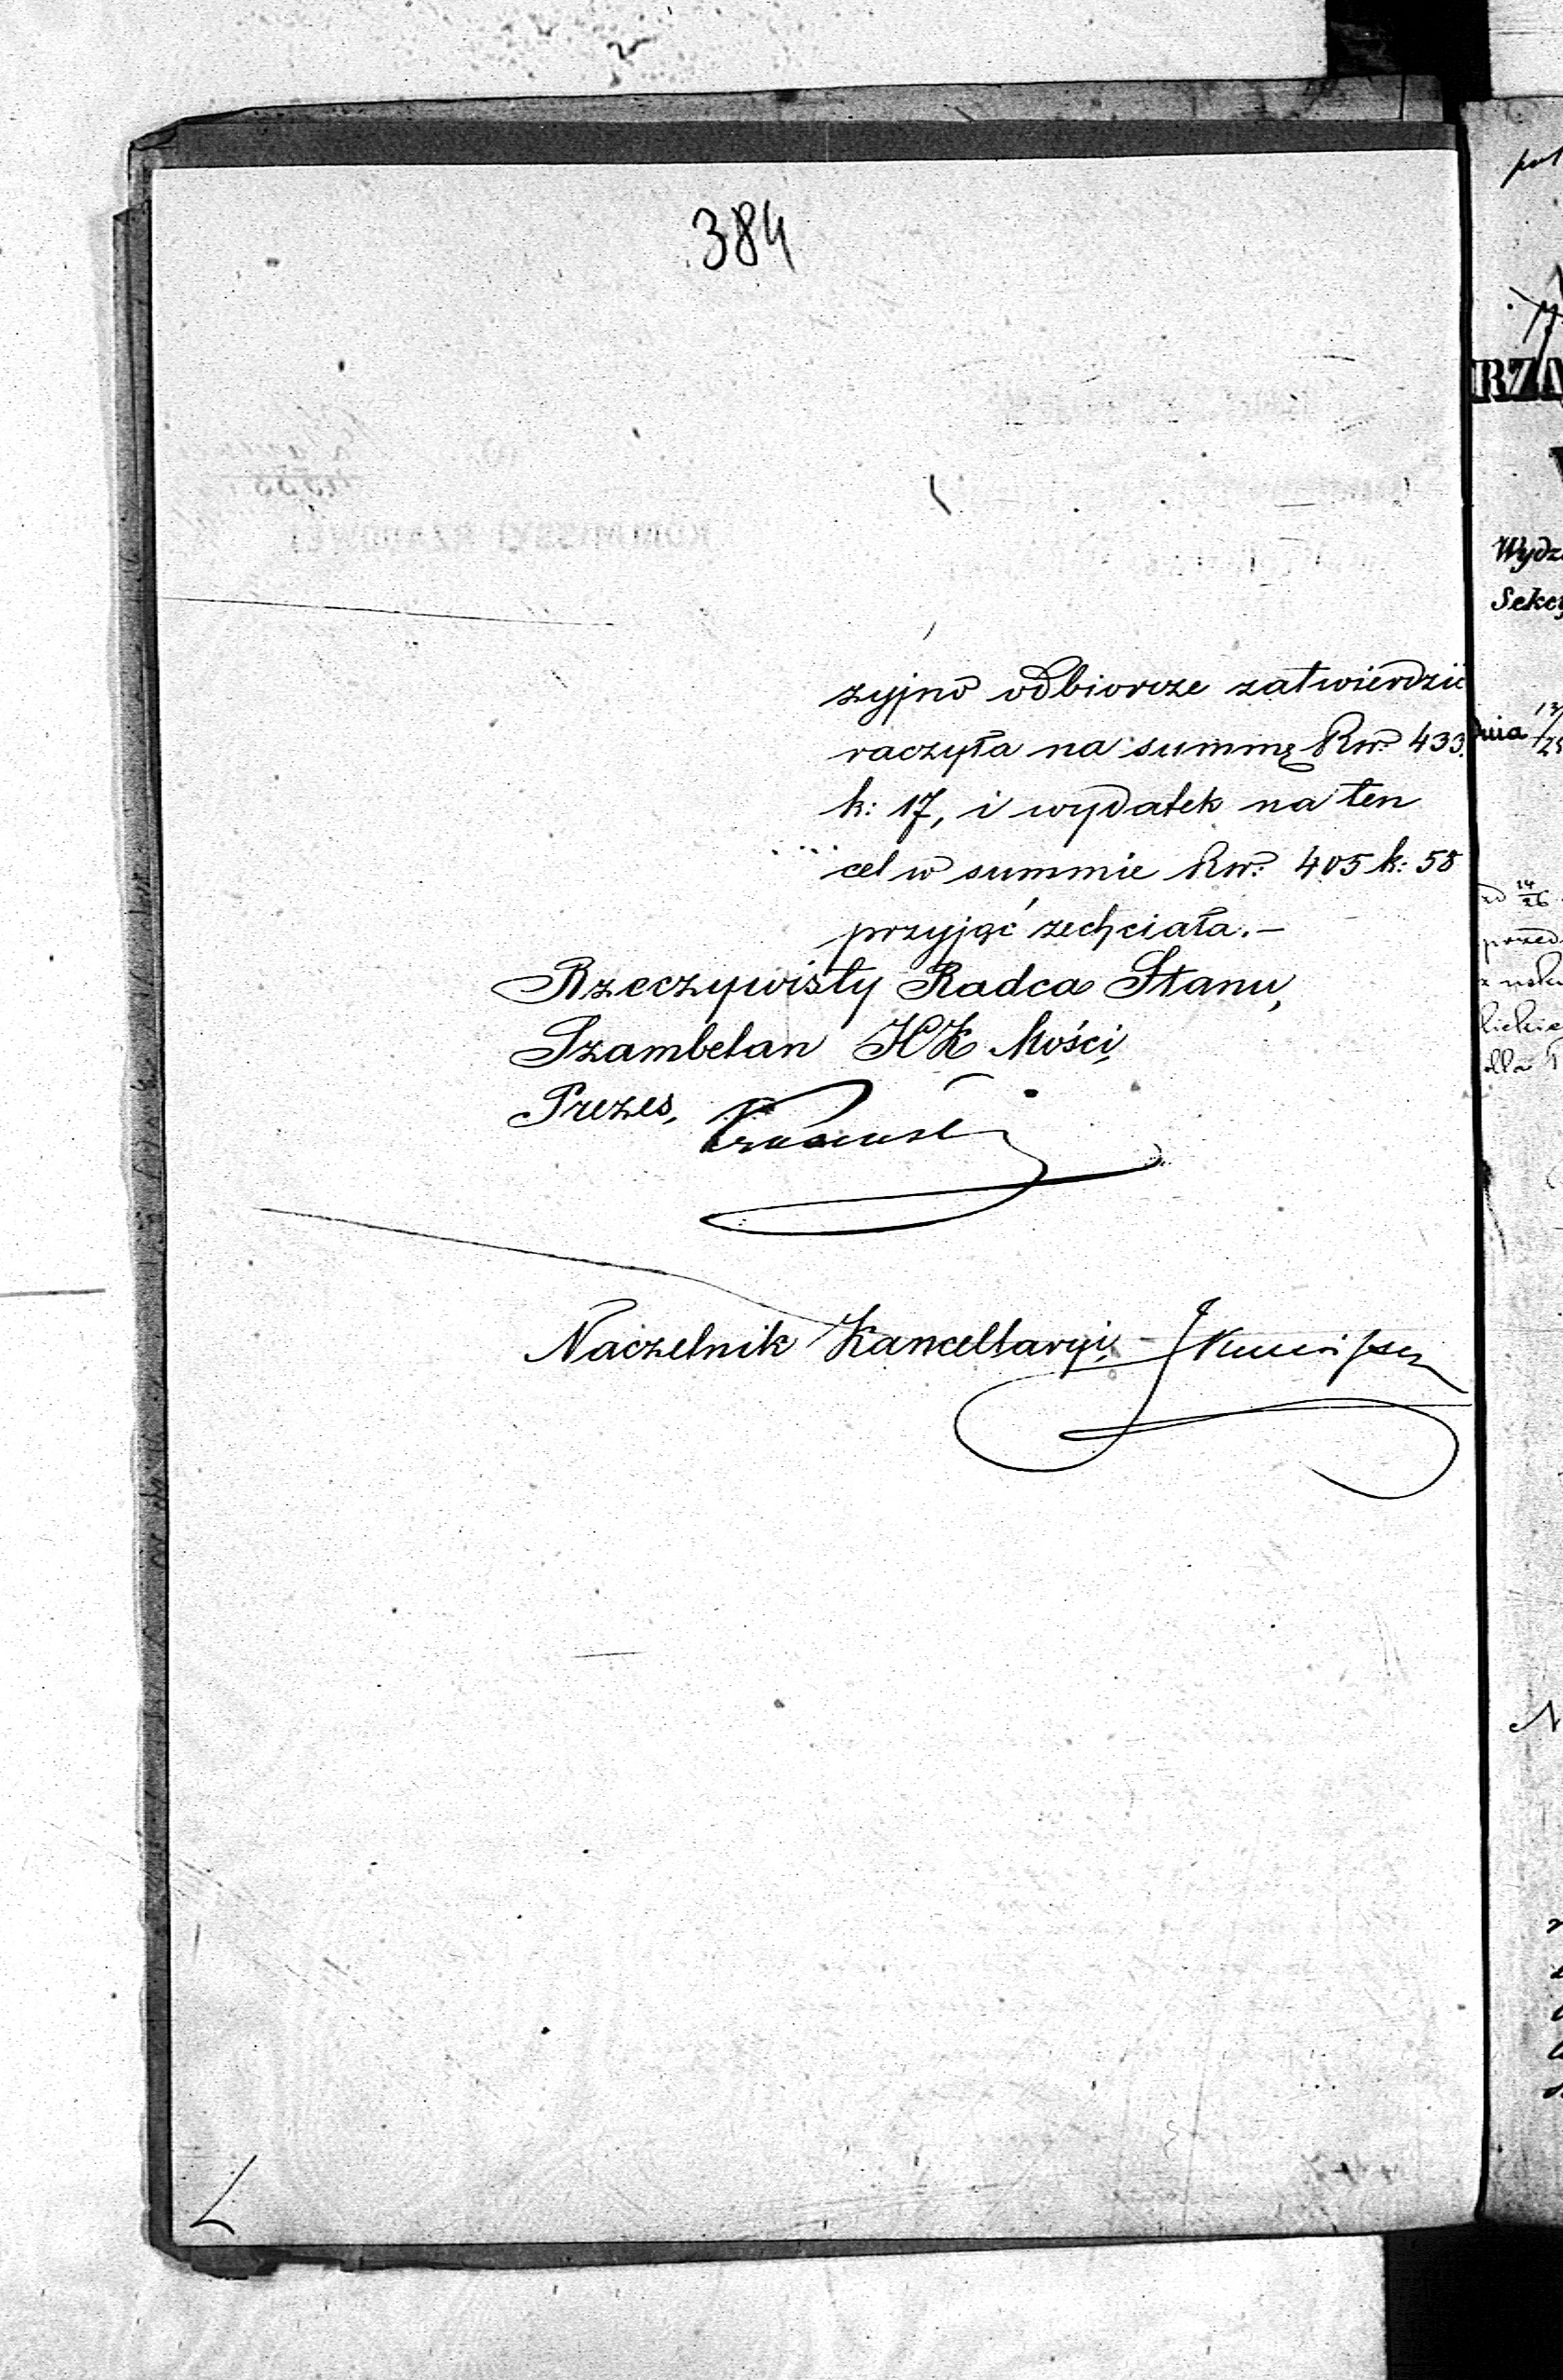 384
zyjno odbiorcze zatwierdzić
raczyła na summę Rsr. 433
k: 17, i wydatek na ten
cel w summie Rsr. 405 k: 58
przyjąć zechciała.—
Rzeczywisty Radca Stanu,
Szambelan JCK Mości,
Prezes,
Naczelnik Kancellaryi,
RZĄ
Wydz
Sekc
dnia
przed